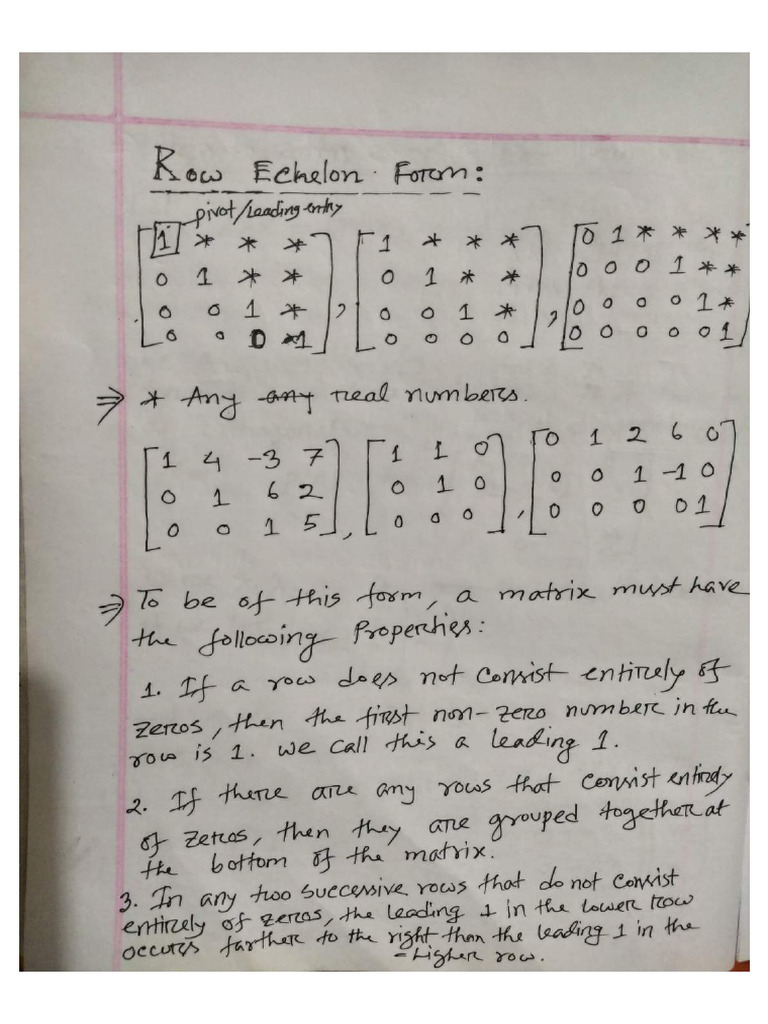 Row Echelon Form:
pivot/Leading entry
1 * * * 1 * * * 0 1 * * * *
0 1 * * 0 1 * * 0 0 0 1 * *
0 0 1 * , 0 0 1 * , 0 0 0 0 1 *
0 0 0 1 0 0 0 0 0 0 0 0 0 1
⇒ * Any any real numbers.
1 4 -3 7 1 1 0 0 1 2 6 0
0 1 6 2 0 1 0 0 0 1 -1 0
0 0 1 5 , 0 0 0 , 0 0 0 0 1
⇒ To be of this form, a matrix must have
the following Properties:
1. If a row does not consist entirely of
zeros, then the first non-zero number in the
row is 1. we call this a leading 1.
2. If there are any rows that consist entirely
of zeros, then they are grouped together at
the bottom of the matrix.
3. In any two successive rows that do not consist
entirely of zeros, the leading 1 in the lower row
occurs farther to the right than the leading 1 in the
- higher row.